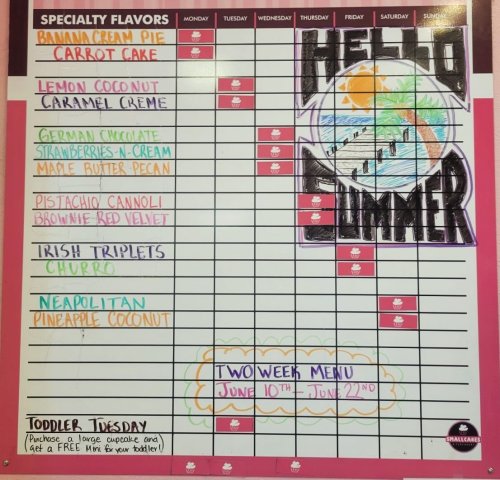 SPECIALTY FLAVORS MONDAY TUESDAY WEDNESDAY THURSDAY FRIDAY SATURDAY SUNDAY
BANANA CREAM PIE
CARROT CAKE
LEMON COCONUT
CARAMEL CRÈME
GERMAN CHOCOLATE
STRAWBERRIES-N-CREAM
MAPLE BUTTER PECAN
PISTACHIO CANNOLI
BROWNIE RED VELVET
IRISH TRIPLETS
CHURRO
NEAPOLITAN
PINEAPPLE COCONUT
HELLO
SUMMER
TWO WEEK MENU
JUNE 10TH - JUNE 22ND
TODDLER TUESDAY
(Purchase a large cupcake and
get a FREE Mini for your toddler!)
SMALLCAKES